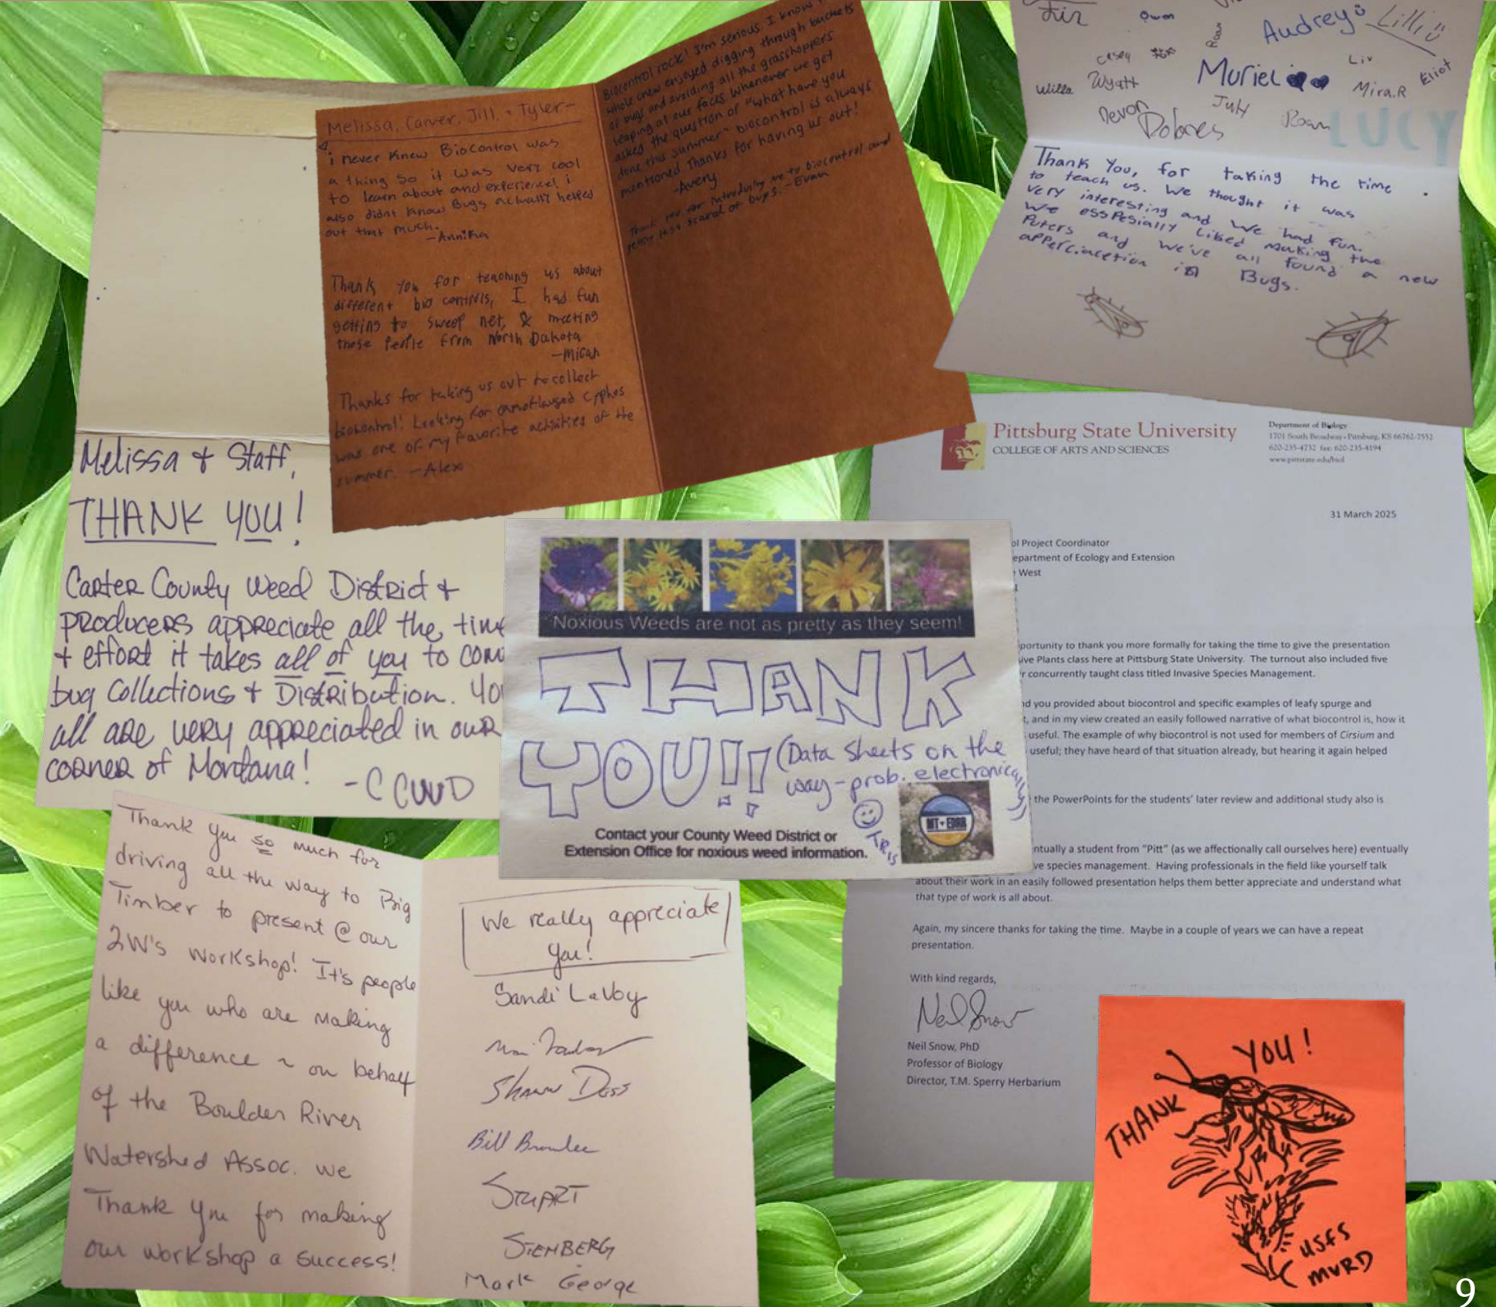 Melissa, Carver, Jill, + Tyler-
i never knew BioControl was
a thing so it was very cool
to learn about and experience! i
also didnt know Bugs actually helped
out that much.
-Annika
Thank You for teaching us about
different bio controls, I had fun
getting to sweep net, & meeting
those People from North Dakota
-Micah
Thanks for taking us out to collect
biocontrol! Looking for camoflauged cyphos
was one of my favorite activities of the
summer. -Alex
Biocontrol rock! I'm serious. I know
whole crew enjoyed digging through buckets
of bugs and avoiding all the grasshoppers
leaping at our faces. Whenever we get
asked the question of "what have you
done this summer" biocontrol is always
mentioned. Thanks for having us out!
-Avery
Thank you for introducing me to biocontrol and
scared of bugs. -Evan
Owen
Audrey
Lilli
Casey
Roan
Liv
Willa
Wyatt
Muriel
Mira.R
Eliot
Devon
July
Dolores
Roan
LUCY
Thank You, for taking the time
to teach us. We thought it was
very interesting and we had fun.
We esspesially liked making the
Puters and we've all found a new
apperciacetion in Bugs.
Melissa + Staff,
THANK YOU!
Carter County Weed District +
producers appreciate all the time
+ effort it takes all of you to com
bug Collections + Distribution. Yo
all are very appreciated in our
corner of Montana!
-CCWD
Pittsburg State University
COLLEGE OF ARTS AND SCIENCES
Department of Biology
1701 South Broadway • Pittsburg, KS 66762-7552
620-235-4732 fax: 620-235-4194
www.pittstate.edu/biol
31 March 2025
ol Project Coordinator
epartment of Ecology and Extension
West
portunity to thank you more formally for taking the time to give the presentation
ive Plants class here at Pittsburg State University. The turnout also included five
r concurrently taught class titled Invasive Species Management.
nd you provided about biocontrol and specific examples of leafy spurge and
t, and in my view created an easily followed narrative of what biocontrol is, how it
useful. The example of why biocontrol is not used for members of Cirsium and
useful; they have heard of that situation already, but hearing it again helped
the PowerPoints for the students' later review and additional study also is
ntually a student from "Pitt" (as we affectionally call ourselves here) eventually
ve species management. Having professionals in the field like yourself talk
about their work in an easily followed presentation helps them better appreciate and understand what
that type of work is all about.
Again, my sincere thanks for taking the time. Maybe in a couple of years we can have a repeat
presentation.
With kind regards,
Neil Snow
Neil Snow, PhD
Professor of Biology
Director, T.M. Sperry Herbarium
Noxious Weeds are not as pretty as they seem!
THANK
YOU!!
(Data sheets on the
way-prob. electronically)
TRIS
MT • EDRR
Contact your County Weed District or
Extension Office for noxious weed information.
Thank you so much for
driving all the way to Big
Timber to present @ our
2W's workshop! It's people
like you who are making
a difference ~ on behalf
of the Boulder River
Watershed Assoc. we
Thank you for making
our workshop a success!
We really appreciate
you!
Sandi LaVoy
Shawn Dess
Bill Brownlee
STUART
STEMBERG
Mark George
THANK
YOU!
USFS
MVRD
9